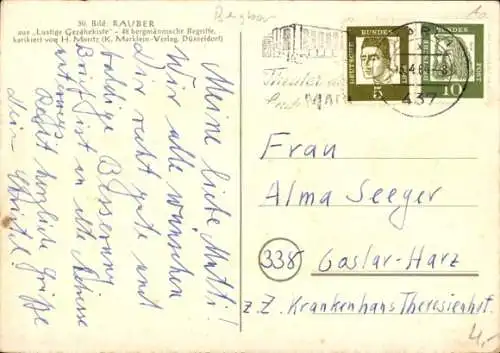 30. Bild: RAUBER
aus „Lustige Gezähekiste" - 48 bergmännische Begriffe,
karikiert von H. Moritz (K. Marklein-Verlag, Düsseldorf)
Meine liebe Mutti!
Wir alle wünschen
Dir recht gute und
baldige Besserung.
Brief ist an alte Adresse
unterwegs.
Recht herzliche Grüße
Dein
Bergbau
Theater
MARL
437
DEUTSCHE BUNDESPOST
5
DEUTSCHE BUNDESPOST
10
Frau
Alma Seeger
338 Goslar-Harz
z.Z. Krankenhaus Theresienhof.
4,-